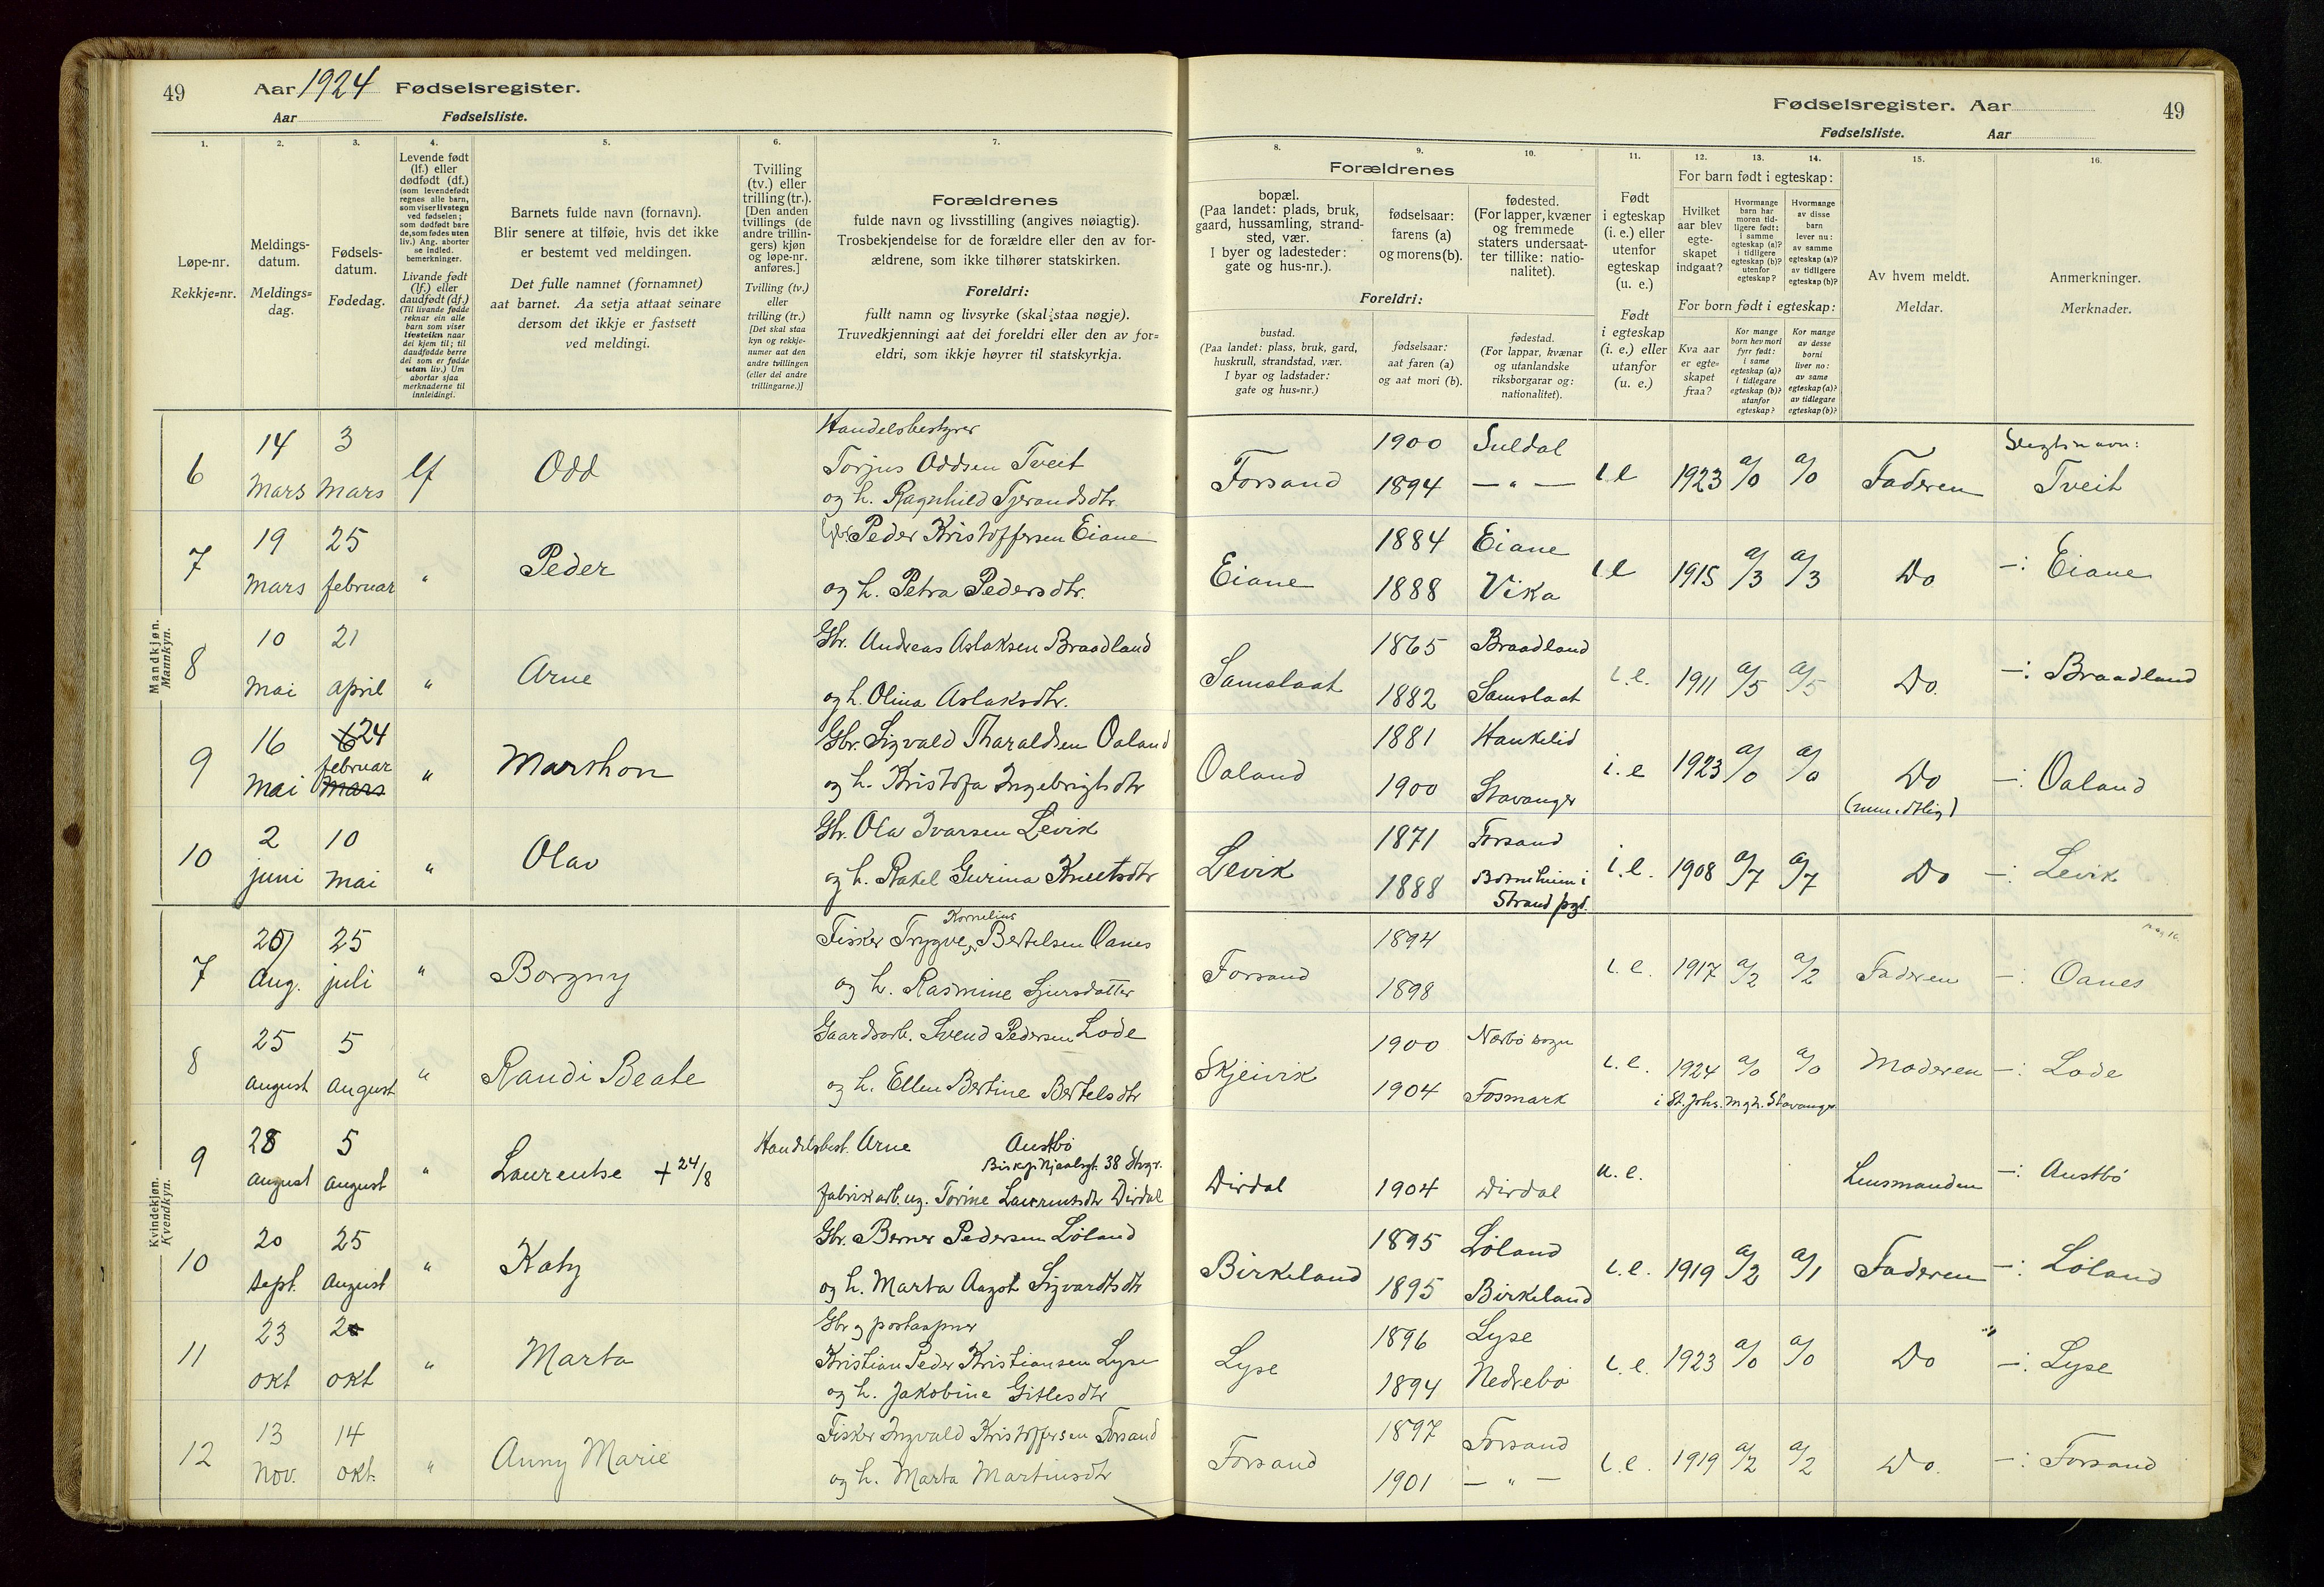 49 Aar 1924 Fødselsregister.
Aar Fødselsliste.
Fødselsregister. Aar 49
Fødselsliste. Aar
1. 2. 3. 4. 5. 6. 7.
8. 9. 10. 11. 12. 13. 14. 15. 16.
Løpe-nr.
Rekkje=nr.
Meldings-
datum.
Meldings=
dag.
Fødsels-
datum.
Fødedag.
Levende født
(lf.) eller
dødfødt (df.)
(som levendefødt
regnes alle barn,
som viser livstegn
ved fødselen;
som dødfødt bare
de, som fødes uten
liv.) Ang. aborter
se indled.
bemerkninger.
Livande født
(lf.) eller
daudfødt (df.)
(Til livande fødde
reknar ein alle
barn som viser
livsteikn naar
dei kjem til; til
daudfødde berre
dei som er fødde
utan liv.) Um
abortar sjaa
merknaderne til
innleidingi.
Barnets fulde navn (fornavn).
Blir senere at tilføie, hvis det ikke
er bestemt ved meldingen.
Det fulle namnet (fornamnet)
aat barnet. Aa setja attaat seinare
dersom det ikkje er fastsett
ved meldingi.
Tvilling
(tv.) eller
trilling (tr.).
[Den anden
tvillings (de
andre trillin-
gers) kjøn
og løpe-nr.
anføres.]
Tvilling (tv.)
eller
trilling (tr.)
[Det skal staa
kyn og rekkje-
numer aat den
andre tvillingen
(eller dei andre
trillingarne.)]
Forældrenes
fulde navn og livsstilling (angives nøiagtig).
Trosbekjendelse for de forældre eller den av for-
ældrene, som ikke tilhører statskirken.
Foreldri:
fullt namn og livsyrke (skal staa nøgje).
Truvedkjenningi aat dei foreldri eller den av for=
eldri, som ikkje høyrer til statskyrkja.
Forældrenes
bopæl.
(Paa landet: plads, bruk,
gaard, hussamling, strand-
sted, vær.
I byer og ladesteder:
gate og hus-nr.).
fødselsaar:
farens (a)
og morens (b).
fødested.
(For lapper, kvæner
og fremmede
staters undersaat-
ter tillike: natio-
nalitet).
Foreldri:
bustad.
(Paa landet: plass, bruk, gard,
huskrull, strandstad, vær.
I byar og ladstader:
gate og hus=nr.)
fødselsaar:
aat faren (a)
og aat mori (b).
fødestad.
(For lappar, kvænar
og utanlandske
riksborgarar og:
nationalitet).
Født
i egteskap
(i. e.) eller
utenfor
egteskap
(u. e.)
Født
i egteskap
(i. e.) eller
utanfor
(u. e.)
For barn født i egteskap:
Hvilket
aar blev
egte-
skapet
indgaat?
Hvormange
barn har
moren tid-
ligere født:
i samme
egteskap (a)?
i tidligere
egteskap (b)?
utenfor
egteskap?
Hvormange
av disse
barn
lever nu:
av samme
egteskap (a)?
av tidligere
egteskap (b)?
For born født i egteskap:
Kva aar
er egte=
skapet
fraa?
Kor mange
born hev mori
fyrr født:
i same
egteskap (a)?
i tidlegare
egteskap (b)?
utanfor
egteskap?
Kor mange
av desse
borni
liver no:
av same
egteskap (a)?
av tidlegare
egteskap (b)?
Av hvem meldt.
Meldar.
Anmerkninger.
Merknader.
Mandkjøn.
Mannkyn.
Handelsbestyrer
6 14 Mars 3 Mars lf Odd Torjus Oddsen Tveit
og h. Ragnhild Tjerandsdtr.
Forsand 1900 Suldal 1894 — " — i.e 1923 a/0 a/0 Faderen Slegtsnavn: Tveit
7 19 Mars 25 februar " Peder Gbr. Peder Kristoffersen Eiane
og h. Petra Pedersdtr.
Eiane 1884 Eiane 1888 Vika i.e 1915 a/3 a/3 Do —: Eiane
8 10 Mai 21 april " Arne Gbr. Andreas Aslaksen Braadland
og h. Olina Aslaksdtr.
Samslaat 1865 Braadland 1882 Samslaat i.e. 1911 a/5 a/5 Do. —: Braadland
9 16 Mai 6 24 februar mars " Marthon Gbr. Sigvald Tharaldsen Oaland
og h. Kristofa Ingebrigtsdtr
Oaland 1881 Haukelid 1900 Stavanger i.e 1923 a/0 a/0 Do (mundtlig) —: Oaland
10 2 juni 10 Mai " Olav Gbr. Ola Ivarsen Levik
og h. Rakel Gurina Knutsdtr
Levik 1871 Forsand 1888 Botneheim i Strand pgd. i.e. 1908 a/7 a/7 Do —: Levik
Kvindekjøn.
Kvendkyn.
Kornelius
7 20 Aug. 25 juli " Borgny Fisker Trygve Bertelsen Oanes
og h. Rasmine Sjursdatter
Forsand 1894 1898 i.e. 1917 a/2 a/2 Faderen —: Oanes
8 25 August 5 August " Randi Beate Gaardsarb. Svend Pedersen Lode
og h. Ellen Bertine Bertelsdtr
Skjeivik 1900 Nærbø sogn 1904 Fosmark i.e. 1924 a/0 a/0 Moderen —: Lode
i St. Johs. Mgh. Stavanger
9 28 August 5 August " Laurentse + 24/8 Handelsbest. Arne Austbø
Biskop Njaalsgt. 38 Stvgr.
fabrikarb. ug. Torine Laurentsdtr Dirdal
Dirdal 1904 Dirdal u.e. Lensmanden —: Austbø
10 20 Sept. 25 August " Katy Gbr. Berner Pedersen Løland
og h. Marta Aagot Sigvardtsdtr
Birkeland 1895 Løland 1895 Birkeland i.e. 1919 a/2 a/1 Faderen —: Løland
Gbr og postaapner
11 23 okt 2 okt " Marta Kristian Peder Kristiansen Lyse
og h. Jakobine Gitlesdtr
Lyse 1896 Lyse 1894 Nedrebø i.e. 1923 a/0 a/0 Do —: Lyse
12 13 Nov. 14 okt. " Anny Marie Fisker Ingvald Kristoffersen Forsand
og h. Marta Martinsdtr
Forsand 1897 Forsand 1901 — " — i.e. 1919 a/2 a/2 Do. —: Forsand